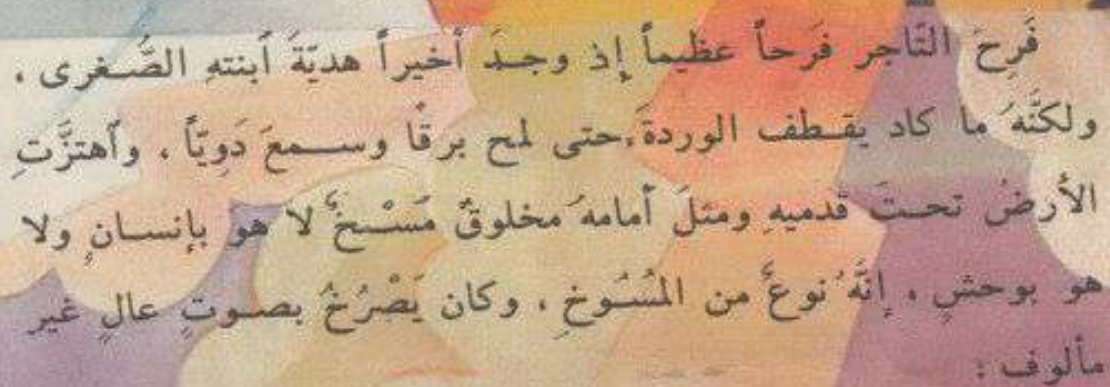 فَرِحَ التّاجر فَرَحاً عظيماً إذ وجـدَ أخيراً هديّةَ آبنتهِ الصُّـغرى ،
ولكنَّهُ ما كاد يقـطف الوردةَ،حتى لمح برقًا وســمعَ دَوِيّاً ، وآهتزَّتِ
الأرضُ تحـتَ قدميهِ ومثلَ أمامهُ مخلوقٌ مَسْـخٌ لا هو بإنسـانٍ ولا
هو بوحشٍ ، إنَّهُ نوعٌ من المُسُـوخِ ، وكان يَصْرُخُ بصـوتٍ عالٍ غير
مألوف :